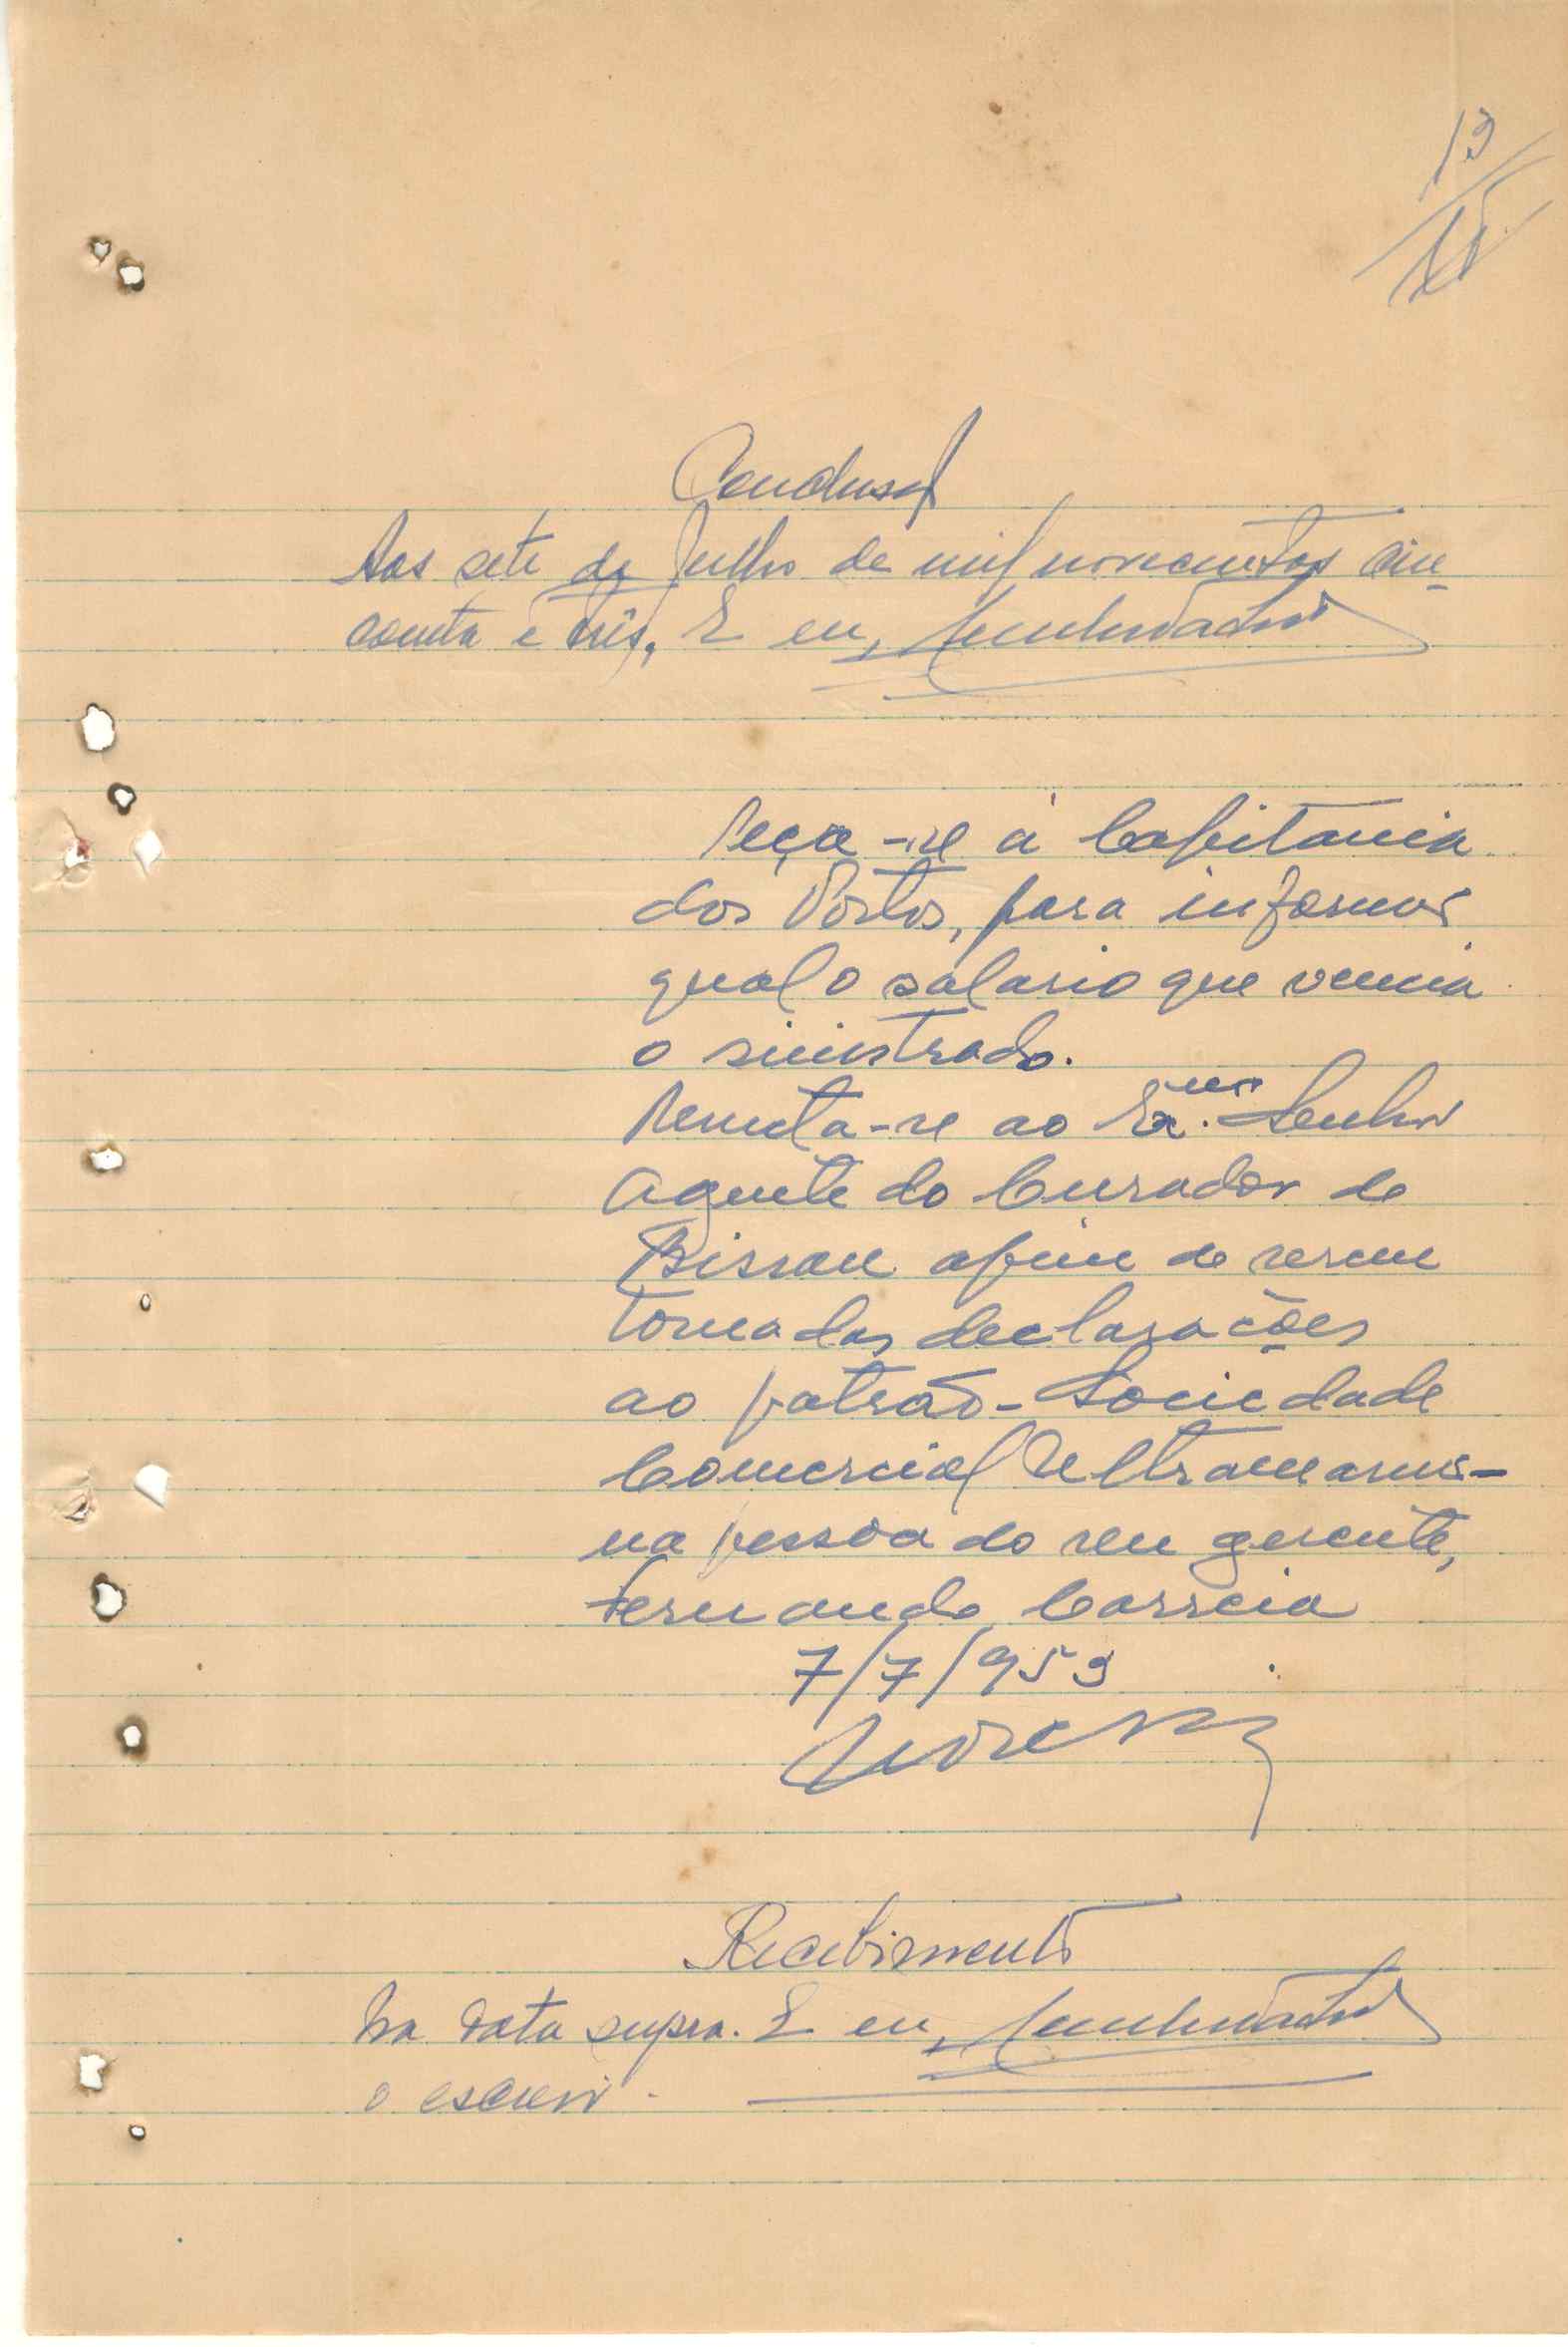 13
Conclusão
Aos sete de Julho de mil novecentos cin-
coenta e três, E eu,
Peça-se à Capitania
dos Portos, para informar
qual o salario que vencia
o sinistrado.
Remeta-se ao Exmo. Senhor
Agente do Curador de
Bissau afim de serem
tomadas declarações
ao patrão - Sociedade
Comercial Ultramarina -
na pessoa do seu gerente,
Fernando Correia
7/7/953
Recebimento
Na data supra. E eu,
o escrevi.